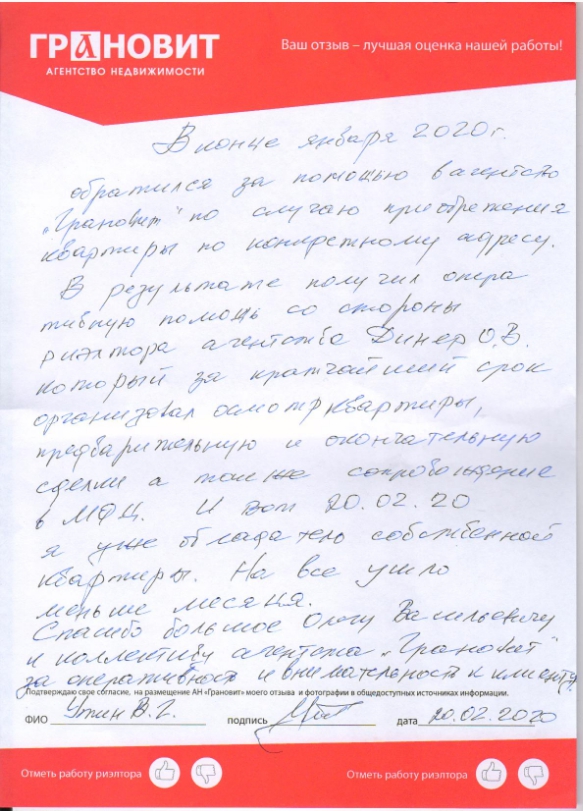 ГРАНОВИТ
АГЕНТСТВО НЕДВИЖИМОСТИ
Ваш отзыв – лучшая оценка нашей работы!
В конце января 2020г.
обратился за помощью в агентство
„Грановит" по случаю приобретения
квартиры по конкретному адресу.
В результате получил опера
тивную помощь со стороны
риэлтора агентства Динер О.В.
который за кратчайший срок
организовал осмотр квартиры,
предварительную и окончательную
сделки а также сопровождение
в МФЦ. И вот 20.02.20
я уже обладатель собственной
квартиры. На все ушло
меньше месяца.
Спасибо большое Олегу Васильевичу
и коллективу агентства „Грановит"
за оперативность и внимательность к клиенту.
Подтверждаю свое согласие, на размещение АН «Грановит» моего отзыва и фотографии в общедоступных источниках информации.
ФИО Уткин В.Г. подпись дата 20.02.2020
Отметь работу риэлтора Отметь работу риэлтора